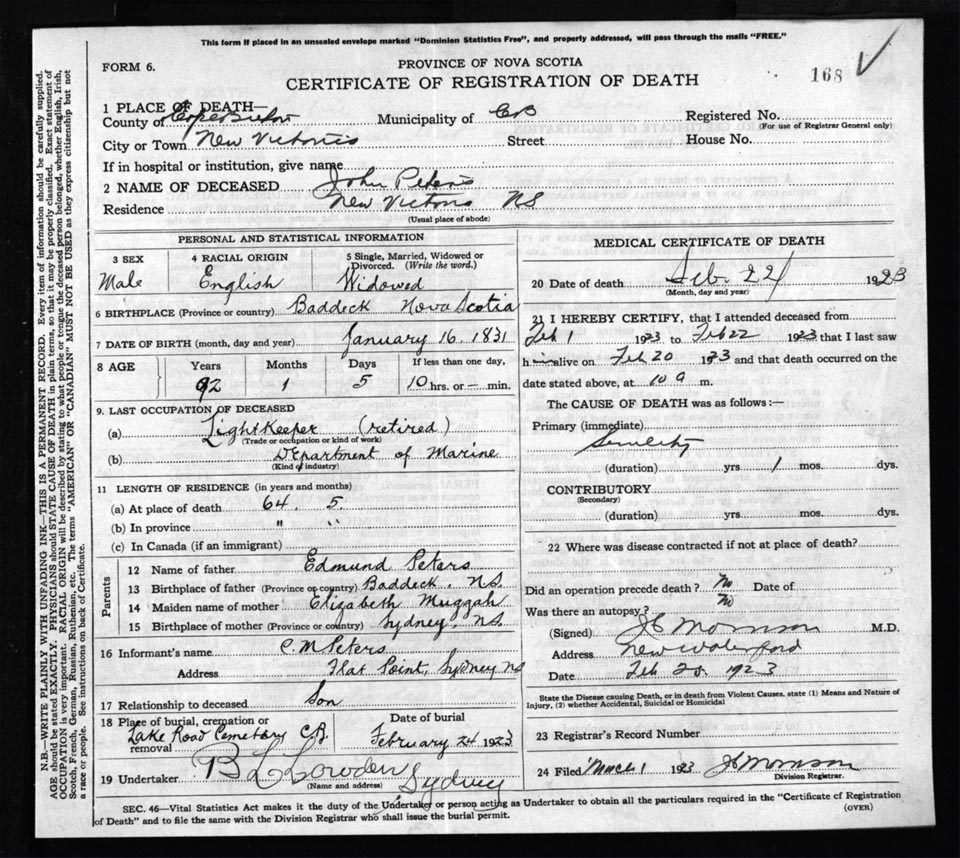 This form if placed in an unsealed envelope marked "Dominion Statistics Free", and property addressed, will pass through the mails "FREE."
FORM 6.
PROVINCE OF NOVA SCOTIA
168
CERTIFICATE OF REGISTRATION OF DEATH
1 PLACE OF DEATH—
County of Cape Breton Municipality of C B Registered No.
(For use of Registrar General only)
City or Town New Victoria Street House No.
If in hospital or institution, give name
2 NAME OF DECEASED John Peters
Residence New Victoria NS
(Usual place of abode)
PERSONAL AND STATISTICAL INFORMATION
3 SEX 4 RACIAL ORIGIN 5 Single, Married, Widowed or Divorced. (Write the word.)
Male English Widowed
6 BIRTHPLACE (Province or country) Baddeck Nova Scotia
7 DATE OF BIRTH (month, day and year) January 16. 1831
8 AGE Years Months Days If less than one day,
92 1 5 10 hrs. or — min.
9. LAST OCCUPATION OF DECEASED
(a) Light Keeper (retired)
(Trade or occupation or kind of work)
(b) Department of Marine
(Kind of industry)
11 LENGTH OF RESIDENCE (in years and months)
(a) At place of death 64. 5.
(b) In province " "
(c) In Canada (if an immigrant)
Parents
12 Name of father Edmund Peters
13 Birthplace of father (Province or country) Baddeck. N.S.
14 Maiden name of mother Elizabeth Muggah
15 Birthplace of mother (Province or country) Sydney, N.S.
16 Informant's name C. M Peters
Address Flat Point, Sydney NS
17 Relationship to deceased Son
18 Place of burial, cremation or removal Lake Road Cemetary C.B. Date of burial February 24 1923
19 Undertaker Sydney
(Name and address)
MEDICAL CERTIFICATE OF DEATH
20 Date of death Feb. 22 1923
(Month, day and year)
21 I HEREBY CERTIFY, that I attended deceased from
Feb 1 1923 to Feb 22 1923 that I last saw
h im alive on Feb 20 1923 and that death occurred on the
date stated above, at 10 a m.
The CAUSE OF DEATH was as follows:—
Primary (immediate)
Senility
(duration) yrs 1 mos. dys.
CONTRIBUTORY
(Secondary)
(duration) yrs mos. dys.
22 Where was disease contracted if not at place of death?
Did an operation precede death? No Date of
Was there an autopsy? No
(Signed) M.D.
Address New Waterford
Date Feb 1923
State the Disease causing Death, or in death from Violent Causes, state (1) Means and Nature of
Injury, (2) whether Accidental, Suicidal or Homicidal
23 Registrar's Record Number
24 Filed March 1 1923
Division Registrar.
SEC. 46—Vital Statistics Act makes it the duty of the Undertaker or person acting as Undertaker to obtain all the particulars required in the "Certificate of Registration
of Death" and to file the same with the Division Registrar who shall issue the burial permit.
(OVER)
N.B.—WRITE PLAINLY WITH UNFADING INK—THIS IS A PERMANENT RECORD. Every item of information should be carefully supplied.
AGE should be stated EXACTLY. PHYSICIANS should STATE CAUSE OF DEATH in plain terms, so that it may be properly classified. Exact statement of
OCCUPATION is very important. RACIAL ORIGIN will be described by stating to what people or tongue the deceased person belonged, whether English, Irish,
Scotch, French, German, Russian, Ruthenian, etc. The terms "AMERICAN" OR "CANADIAN" MUST NOT BE USED as they express citizenship but not
a race or people. See instructions on back of Certificate.